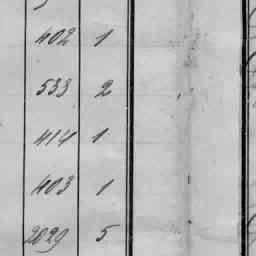 402 1
533 2
414 1
403 1
2029 5